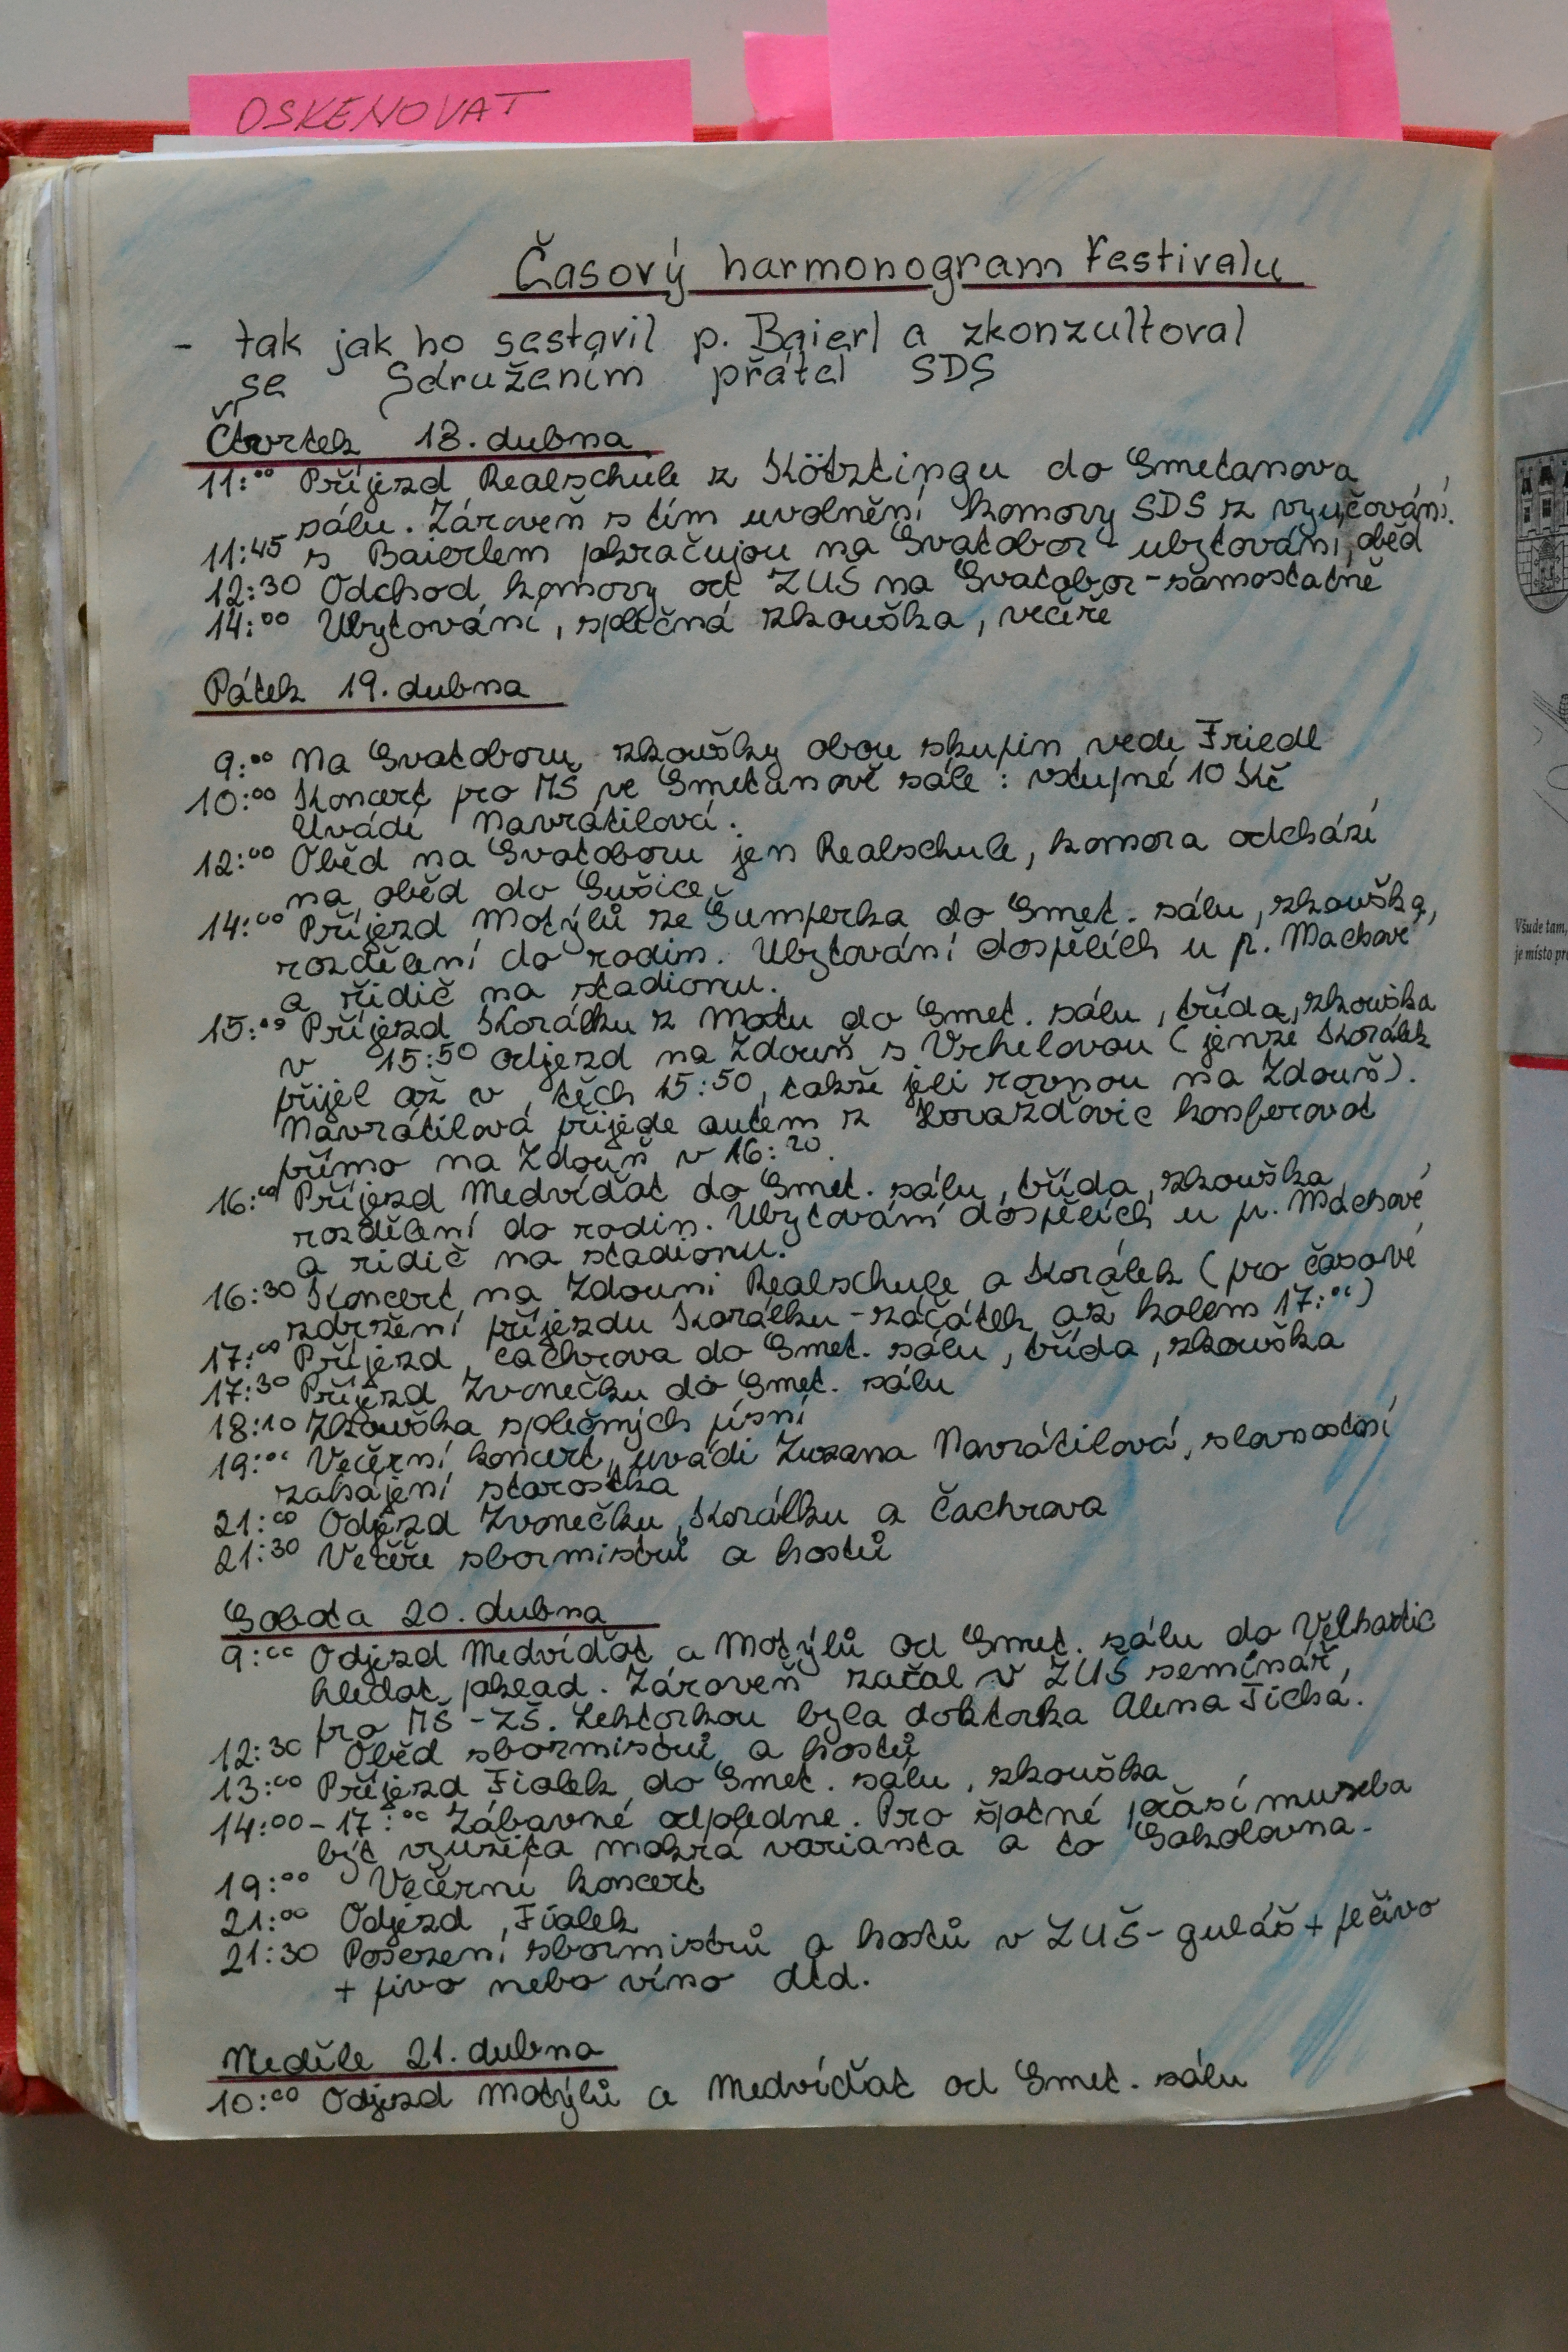 OSKENOVAT
Časový harmonogram Festivalu
- tak jak ho sestavil p. Baierl a zkonzultoval
se Sdružením přátel SDS
Čtvrtek 18. dubna
11:00 Příjezd Realschule z Kötztingu do Smetanova
sálu. Zároveň s tím uvolnění komory SDS z vyučování.
11:45 s Baierlem pokračujou na Svatobor - ubytování, oběd
12:30 Odchod komory od ZUŠ na Svatobor - samostatně
14:00 Ubytování, spoľečná zkouška, večeře
Pátek 19. dubna
9:00 Na Svatoboru zkoušky obou skupin vede Friedl
10:00 Koncert pro MŠ ve Smetanově sále: vstupné 10 Kč
Uvádí Navrátilová.
12:00 Oběd na Svatoboru jen Realschule, komora odchází
na oběd do Sušice.
14:00 Příjezd Motýlů ze Šumperka do Smet. sálu, zkouška,
rozdělení do rodin. Ubytování dospělích u p. Machové
a řidič na stadionu.
15:00 Příjezd Korálku z Mostu do Smet. sálu, třída, zkouška
v 15:50 odjezd na Zdouň s Vrhelovou (jenže Korálek
přijel až v těch 15:50, takže jeli rovnou na Zdouň).
Navrátilová přijede autem z Horažďovic konferovat
přímo na Zdouň v 16:20.
16:00 Příjezd Medvíďat do Smet. sálu, třída, zkouška,
rozdělení do rodin. Ubytování dospělích u p. Machové
a ridič na stadionu.
16:30 Koncert na Zdouni Realschule a Korálek (pro časové
zdržení příjezdu Korálku - začátek až kolem 17:00)
17:00 Příjezd Čachrova do Smet. sálu, třída, zkouška
17:30 Příjezd Zvonečku do Smet. sálu
18:10 Zkouška společných písní
19:00 Večerní koncert, uvádí Zuzana Navrátilová, slavnostní
zahájení starostka
21:00 Odjezd Zvonečku, Korálku a Čachrova
21:30 Večeře sbormistrů a hostů
Sobota 20. dubna
9:00 Odjezd Medvíďat a Motýlů od Smet. sálu do Velhartic
hledat poklad. Zároveň začal v ZUŠ seminář,
pro MŠ - ZŠ. Lektorkou byla doktorka Alena Tichá.
12:30 Oběd sbormistrů a hostů
13:00 Příjezd Fialek do Smet. sálu, zkouška
14:00 - 17:00 Zábavné odpoledne. Pro špatné počasí museba
být využita mokrá varianta a to Sokolovna.
19:00 Večerní koncert
21:00 Odjezd Fialek
21:30 Posezení sbormistrů a hostů v ZUŠ - guláš + pečivo
+ pivo nebo víno atd.
Neděle 21. dubna
10:00 Odjezd Motýlů a Medvíďat od Smet. sálu
Všude tam,
je místo pro